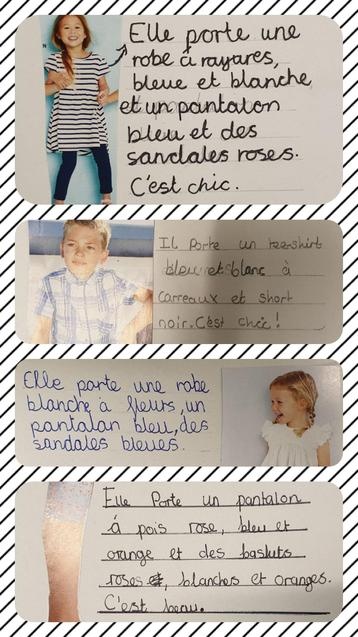 Elle porte une
robe à rayures,
bleue et blanche,
et un pantalon
bleu et des
sandales roses.
C'est chic.
Il Porte un tee-shirt
bleu et blanc à
carreaux et short
noir. C'est chic!
Elle porte une robe
blanche à fleurs, un
pantalon bleu, des
sandales bleues.
Elle Porte un pantalon
à pois rose, bleu et
orange et des baskets
roses, blanches et oranges.
C'est beau.